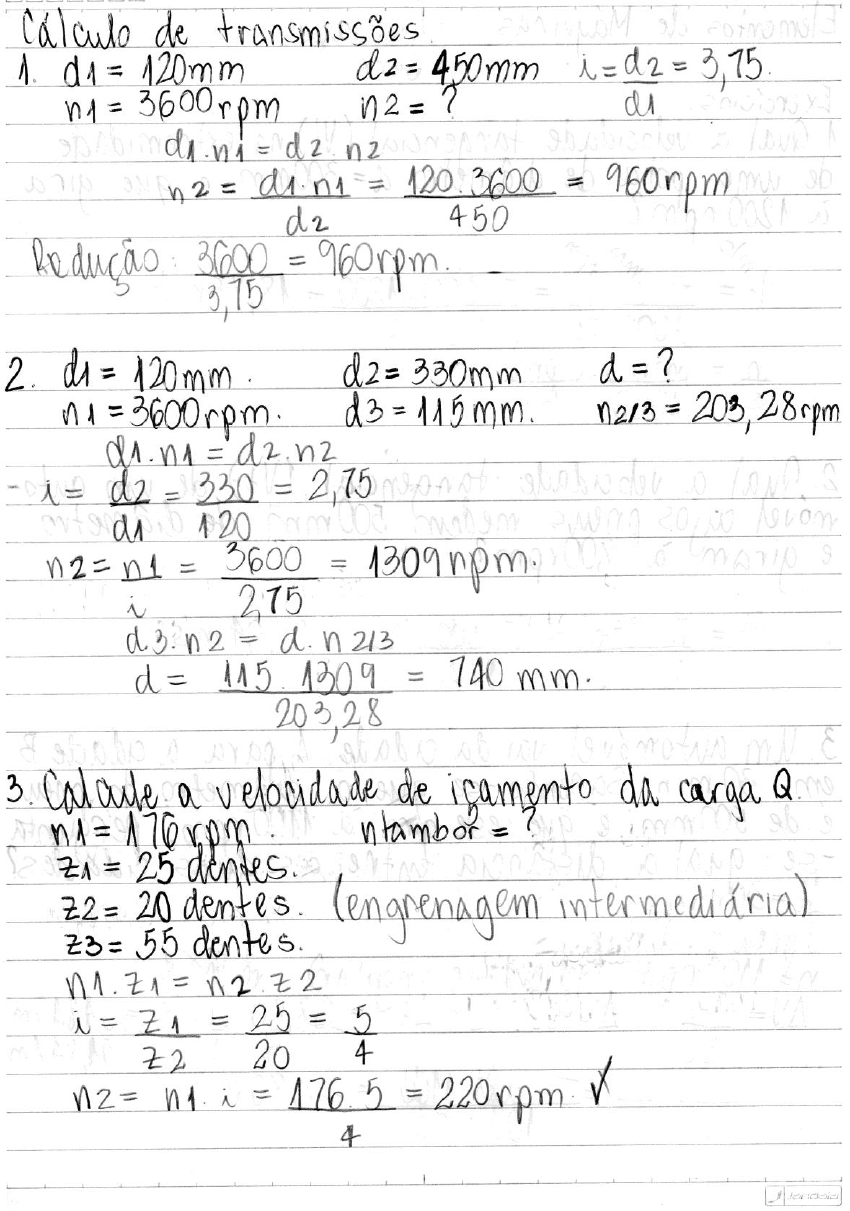 Cálculo de transmissões.
1. d1 = 120mm d2 = 450mm i = d2/d1 = 3,75.
n1 = 3600rpm n2 = ?
d1.n1 = d2.n2
n2 = d1.n1/d2 = 120.3600/450 = 960rpm
Redução: 3600/3,75 = 960rpm.
2. d1 = 120mm. d2 = 330mm d = ?
n1 = 3600rpm. d3 = 115mm. n2/3 = 203,28rpm
d1.n1 = d2.n2
i = d2/d1 = 330/120 = 2,75
n2 = n1/i = 3600/2,75 = 1309rpm.
d3.n2 = d.n2/3
d = 115.1309/203,28 = 740 mm.
3. Calcule a velocidade de içamento da carga Q.
n1 = 176rpm. ntambor = ?
z1 = 25 dentes.
z2 = 20 dentes. (engrenagem intermediária)
z3 = 55 dentes.
n1.z1 = n2.z2
i = z1/z2 = 25/20 = 5/4
n2 = n1.i = 176.5/4 = 220rpm. ✓